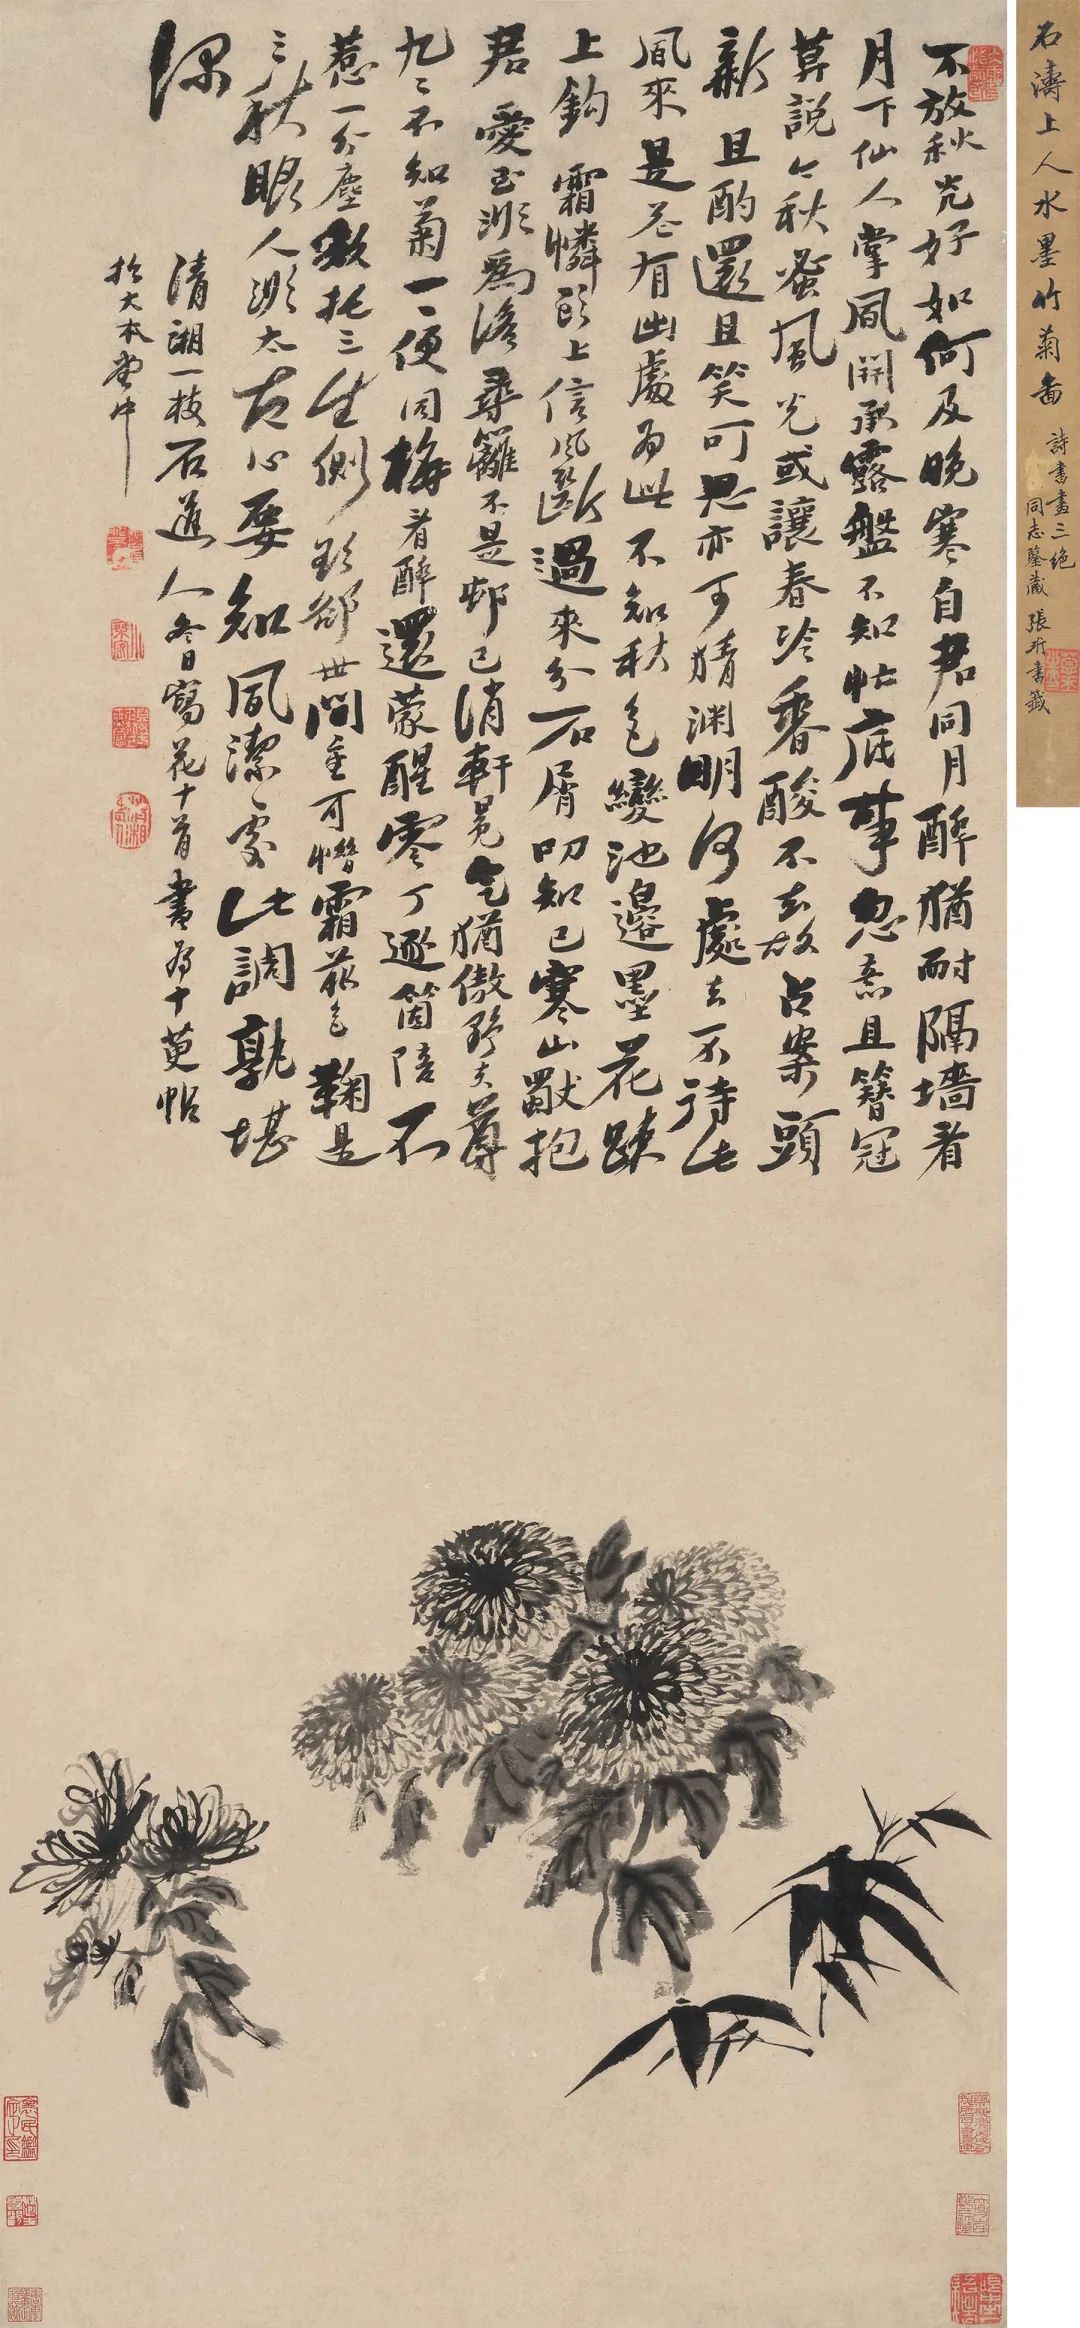 不放秋光好如何及晚寒自君同月醉猶耐隔墻看
月下仙人掌風開承露盤不知忙底事忽意且簪冠
算說今秋蚤風光或讓春冷香酸不去故占案頭
新且酌還且笑可思亦可猜淵明何處去不待此
風來是花有幽處為此不知秋色變池邊墨花踈
上鈎霜憐頭上信風斷過來分石屑叩知己寒山獻抱
君愛玉為澹尋籬不是邨已消軒冕氣猶傲野夫尊
九二不知菊一一便同梅看醉還蒙醒零丁逐箇陪不
惹一分塵敢托三生側世間重可憎霜花色鞠是
三秋眼人太古心要知風潔處此調孰堪
深
清湘一枝石道人冬日寫花十首書為十帖
於大本堂中
石濤上人水墨竹菊畵
詩書畫三绝
同志鑒藏 張珩書籤